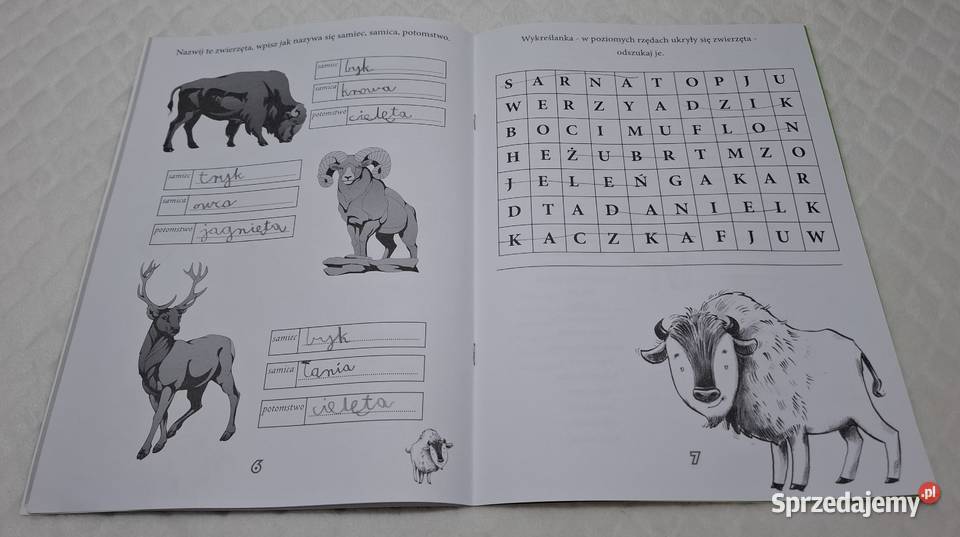 Nazwij te zwierzęta, wpisz jak nazywa się samiec, samica, potomstwo.
samiec byk
samica krowa
potomstwo cielęta
samiec tryk
samica owca
potomstwo jagnięta
samiec byk
samica łania
potomstwo cielęta
6
Wykreślanka - w poziomych rzędach ukryły się zwierzęta -
odszukaj je.
S A R N A T O P J U
W E R Z Y A D Z I K
B O C I M U F L O N
H E Ż U B R T M Z O
J E L E Ń G A K A R
D T A D A N I E L K
K A C Z K A F J U W
7
Sprzedajemy.pl